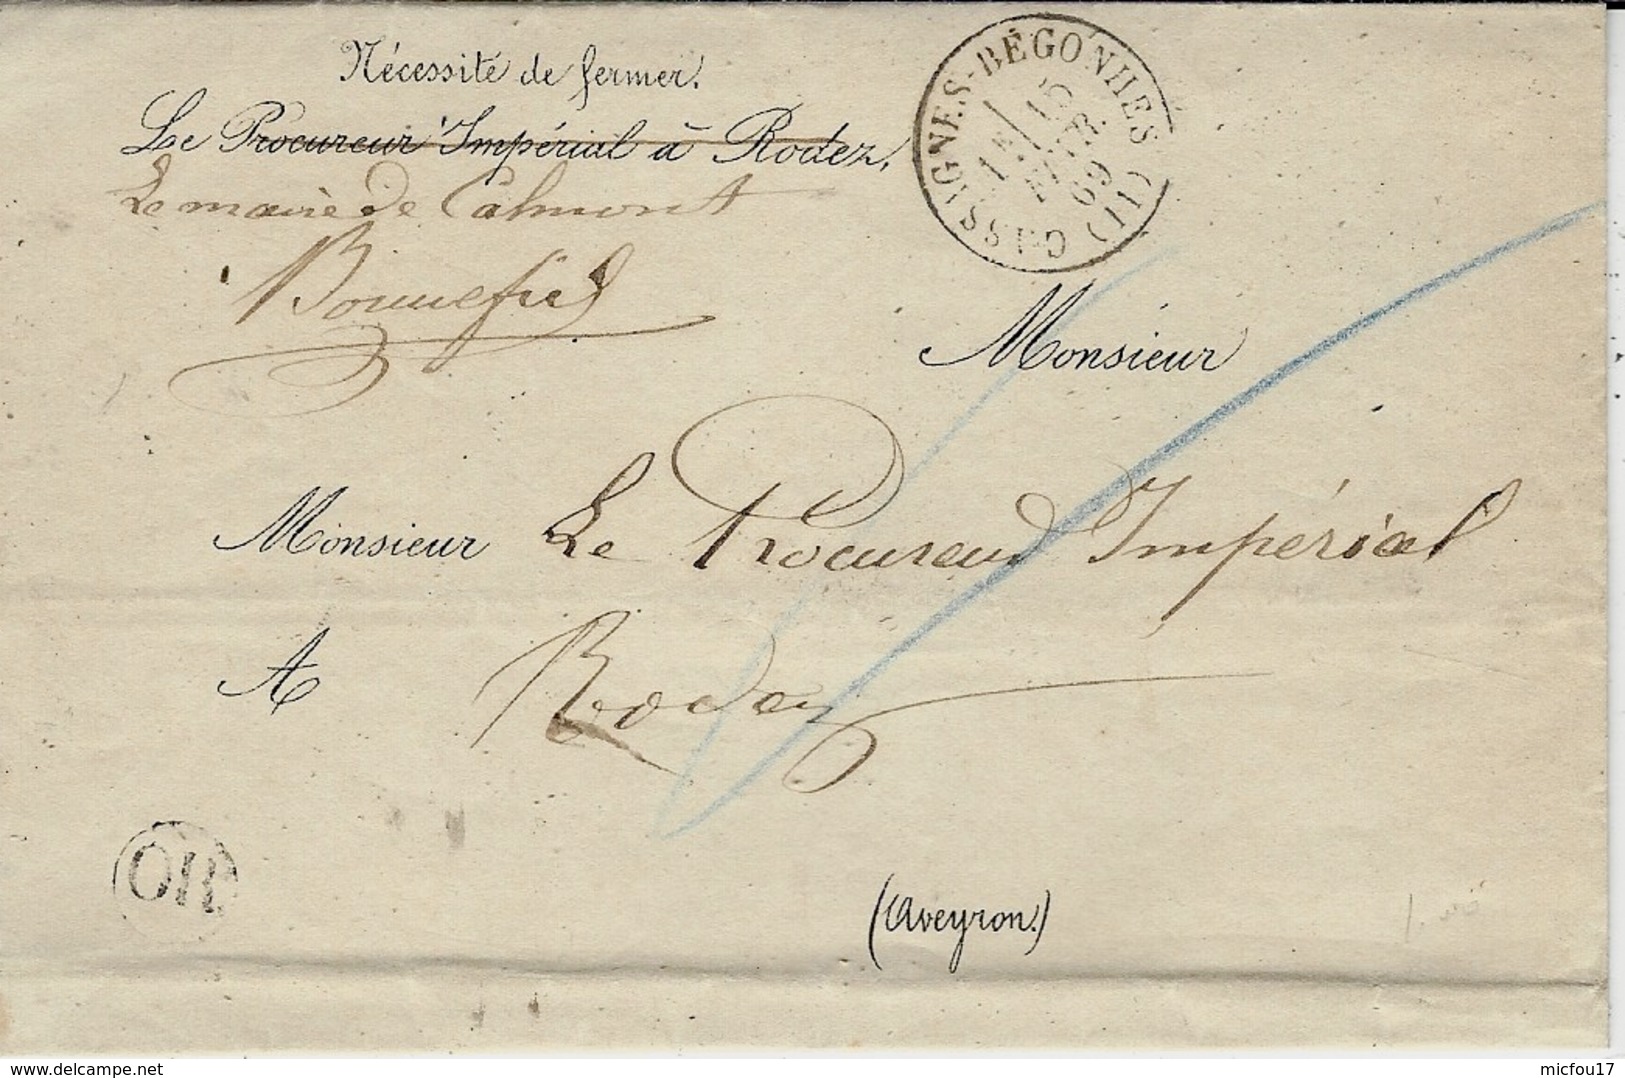 Nécessité de fermer.
Le Procureur Impérial à Rodez,
Le maire de Calmont
Bonnefis
CASSAGNES-BÉGONHES (11)
1E
15
FEVR.
69
Monsieur
Monsieur Le Procureur Impérial
A Rodez
OR
(Aveyron.)
delcampe.net
micfou17